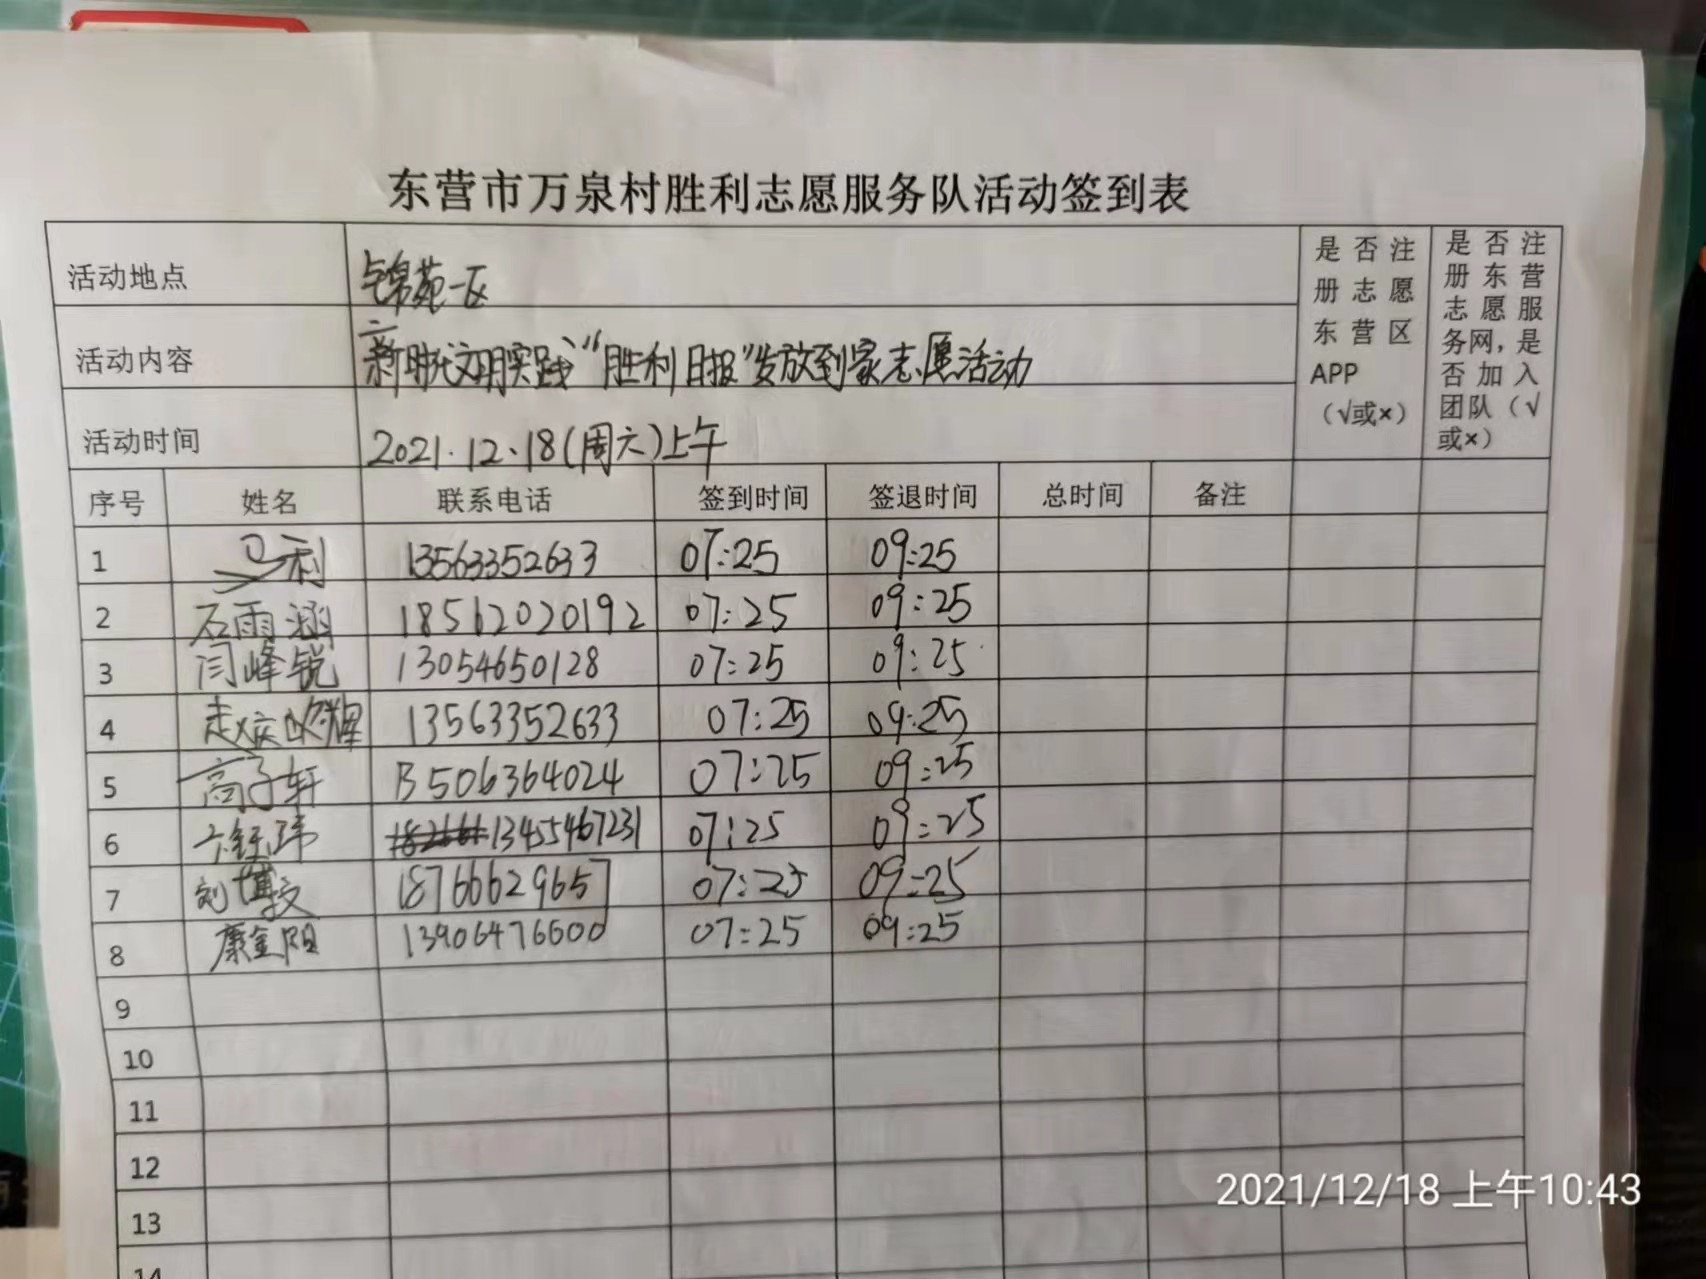 东营市万泉村胜利志愿服务队活动签到表
活动地点 锦苑一区
是否注册志愿东营区APP（√或×）
是否注册东营志愿服务网，是否加入团队（√或×）
活动内容 新时代文明实践“胜利日报”发放到家志愿活动
活动时间 2021.12.18(周六)上午
序号 姓名 联系电话 签到时间 签退时间 总时间 备注
1 利 13563352633 07:25 09:25
2 石雨涵 18562020192 07:25 09:25
3 闫峰锐 13054650128 07:25 09:25
4 赵庆 13563352633 07:25 09:25
5 高子轩 13506364024 07:25 09:25
6 13455467231 07:25 09:25
7 刘博文 18766629657 07:25 09:25
8 康金阳 13906476600 07:25 09:25
9
10
11
12
13
14
2021/12/18 上午10:43